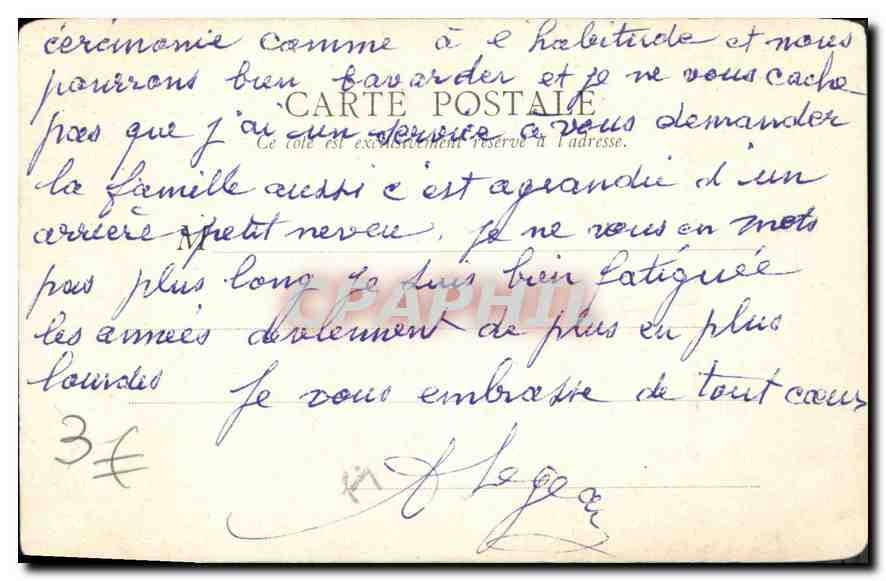 cérémonie comme à l'habitude et nous
pourrons bien bavarder et je ne vous cache
CARTE POSTALE
pas que j'ai un service à vous demander
Ce côté est exclusivement réservé à l'adresse.
la famille aussi c'est agrandie d'un
arrière petit neveu. je ne vous en mets
M
pas plus long je suis bien fatiguée
CPAPHIL
les années deviennent de plus en plus
lourdes Je vous embrasse de tout cœur
3€